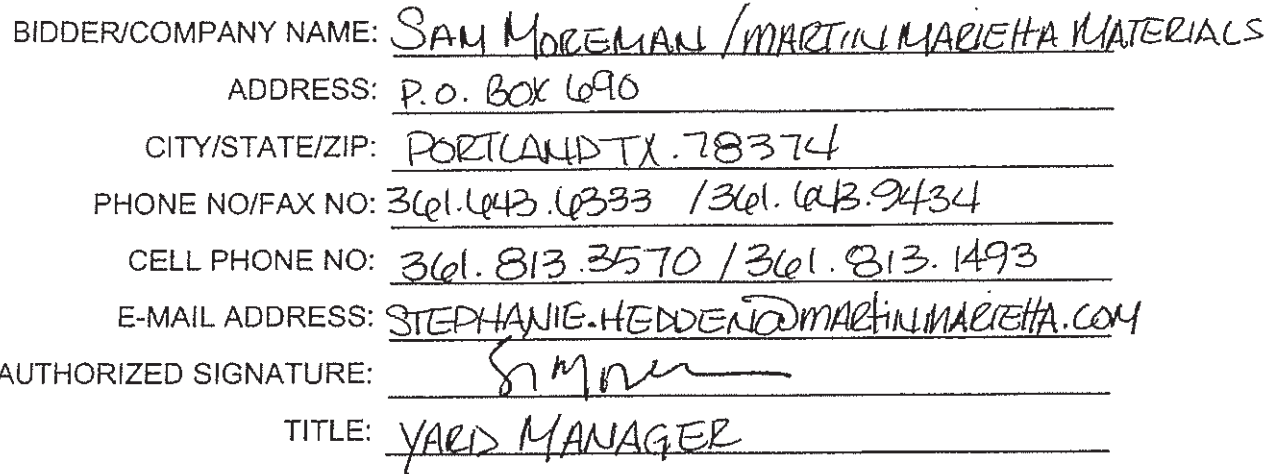 BIDDER/COMPANY NAME: SAM MOREMAN / MARTIN MARIETTA MATERIALS
ADDRESS: P.O. BOX 690
CITY/STATE/ZIP: PORTLAND TX. 78374
PHONE NO/FAX NO: 361.643.6333 / 361.643.9434
CELL PHONE NO: 361.813.3570 / 361.813.1493
E-MAIL ADDRESS: STEPHANIE.HEDDEN@MARTINMARIETTA.COM
AUTHORIZED SIGNATURE:
TITLE: YARD MANAGER